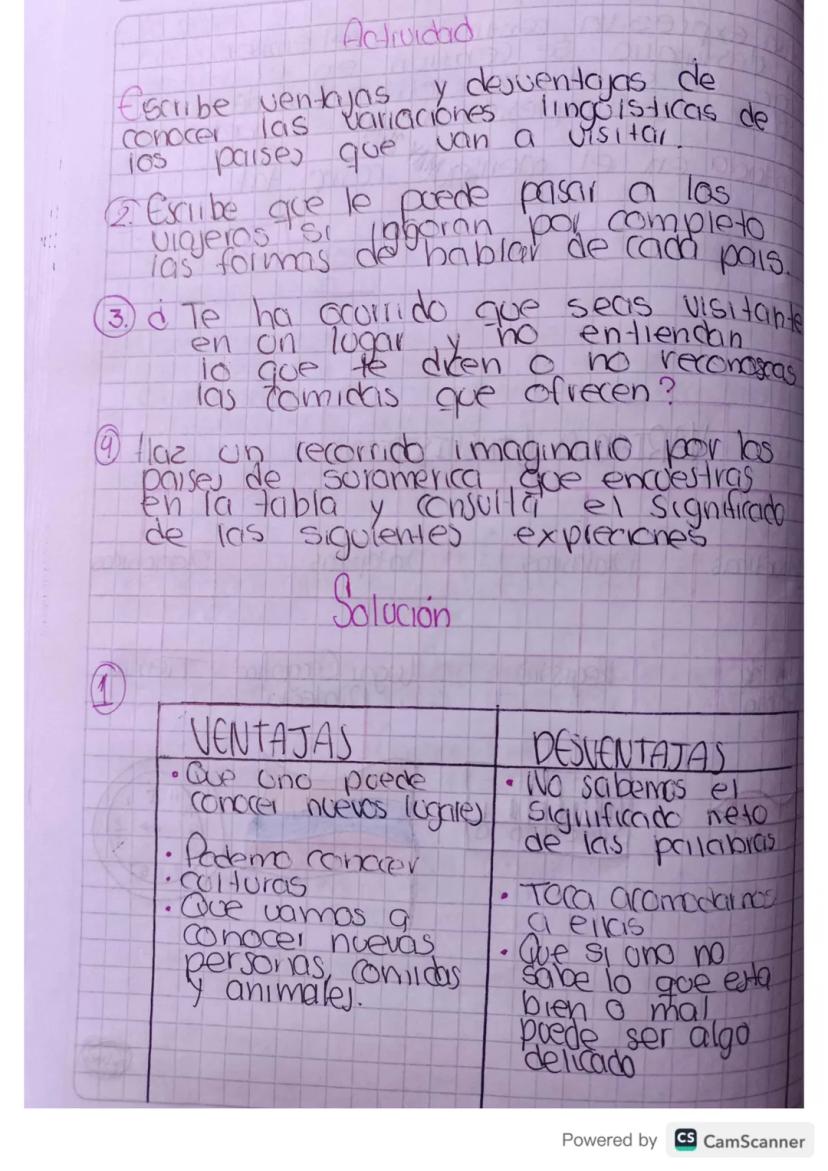 Actividad
Escribe ventajas y desventajas de
conocer las variaciones lingüísticas de
los paises que van a visitar.
2. Escribe que le puede pasar a los
viajeros si ignoran por completo
las formas de hablar de cada pais.
3. ¿Te ha ocurrido que seas visitante
en un lugar y no entiendan
lo que te dicen o no reconoscas
las comidas que ofrecen?
4 Haz un recorrido imaginario por los
paises de suramerica que encuestras
en la tabla y consulta el significado
de las siguientes expreciones
Solución
1
VENTAJAS
• Que uno puede
conocer nuevos lugares
• Podemo conocer
• culturas
• Que vamos a
conocer nuevas
personas, comidas
y animales.
DESVENTAJAS
• No sabemos el
significado neto
de las palabras
• Toca acomodarnos
a ellas
• Que si uno no
sabe lo que esta
bien o mal
puede ser algo
delicado
Powered by CS CamScanner